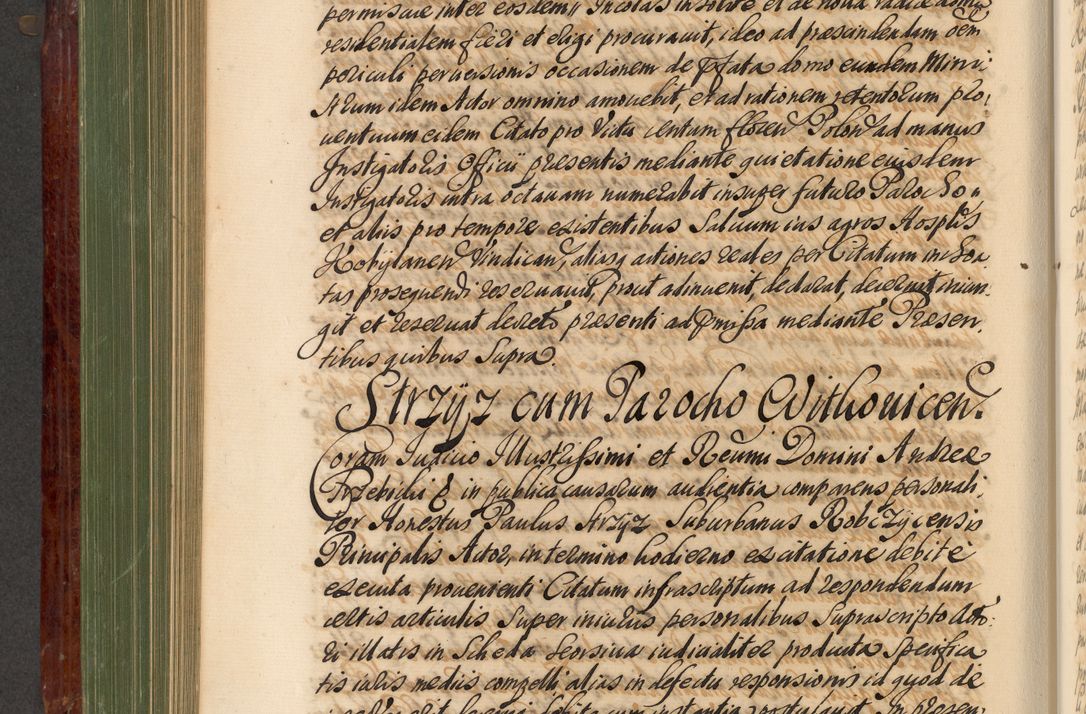 permiscere inter eosdem Incolas insolite et de noua radice domu
residentialem fieri et erigi procurauit, ideo ad praescindendam oem
periculi peruersionis occasionem de pfata domo eundem Minis
trum idem Actor omnino amouebit, et ad rationem retentorum pro,
uentuum eidem Citato pro Victu centum floren Polon ad manus
Instigatoris Officij presentis mediante quietatione eiusdem
Instigatoris intra octauam numerabit insuper futuro Parocho
et aliis pro tempore existentibus Saluum ius agros Hosplis
Kobylanen Vindican, aliasq actiones reales per Citatum incho a
tas prosequendi reseruauit, prout adinuenit, declarat, decernit iniun
git et reseruat decreto presenti ad pmissa mediante Presen,
tibus quibus Supra.
Strzyz cum Parocho Withouicen.
Coram Iudicio Illustrissimi et Reūmi Domini Andreæ
Trzebicki in publica causarum audientia comparens personali,
ter Honestus Paulus Strzyz Suburbanus Robczycensis
Principalis Actor, in termino hodierno ex citatione debite
executa proueniente Citatum infrascriptum ad respondendum
certis articulis Super iniurijs personalibus Suprascripto Acto:
ri illatis in Scheda seorsiua iudicialiter producta Specifica
tis iuris medijs compelli alias in defectu responsionis id quod de